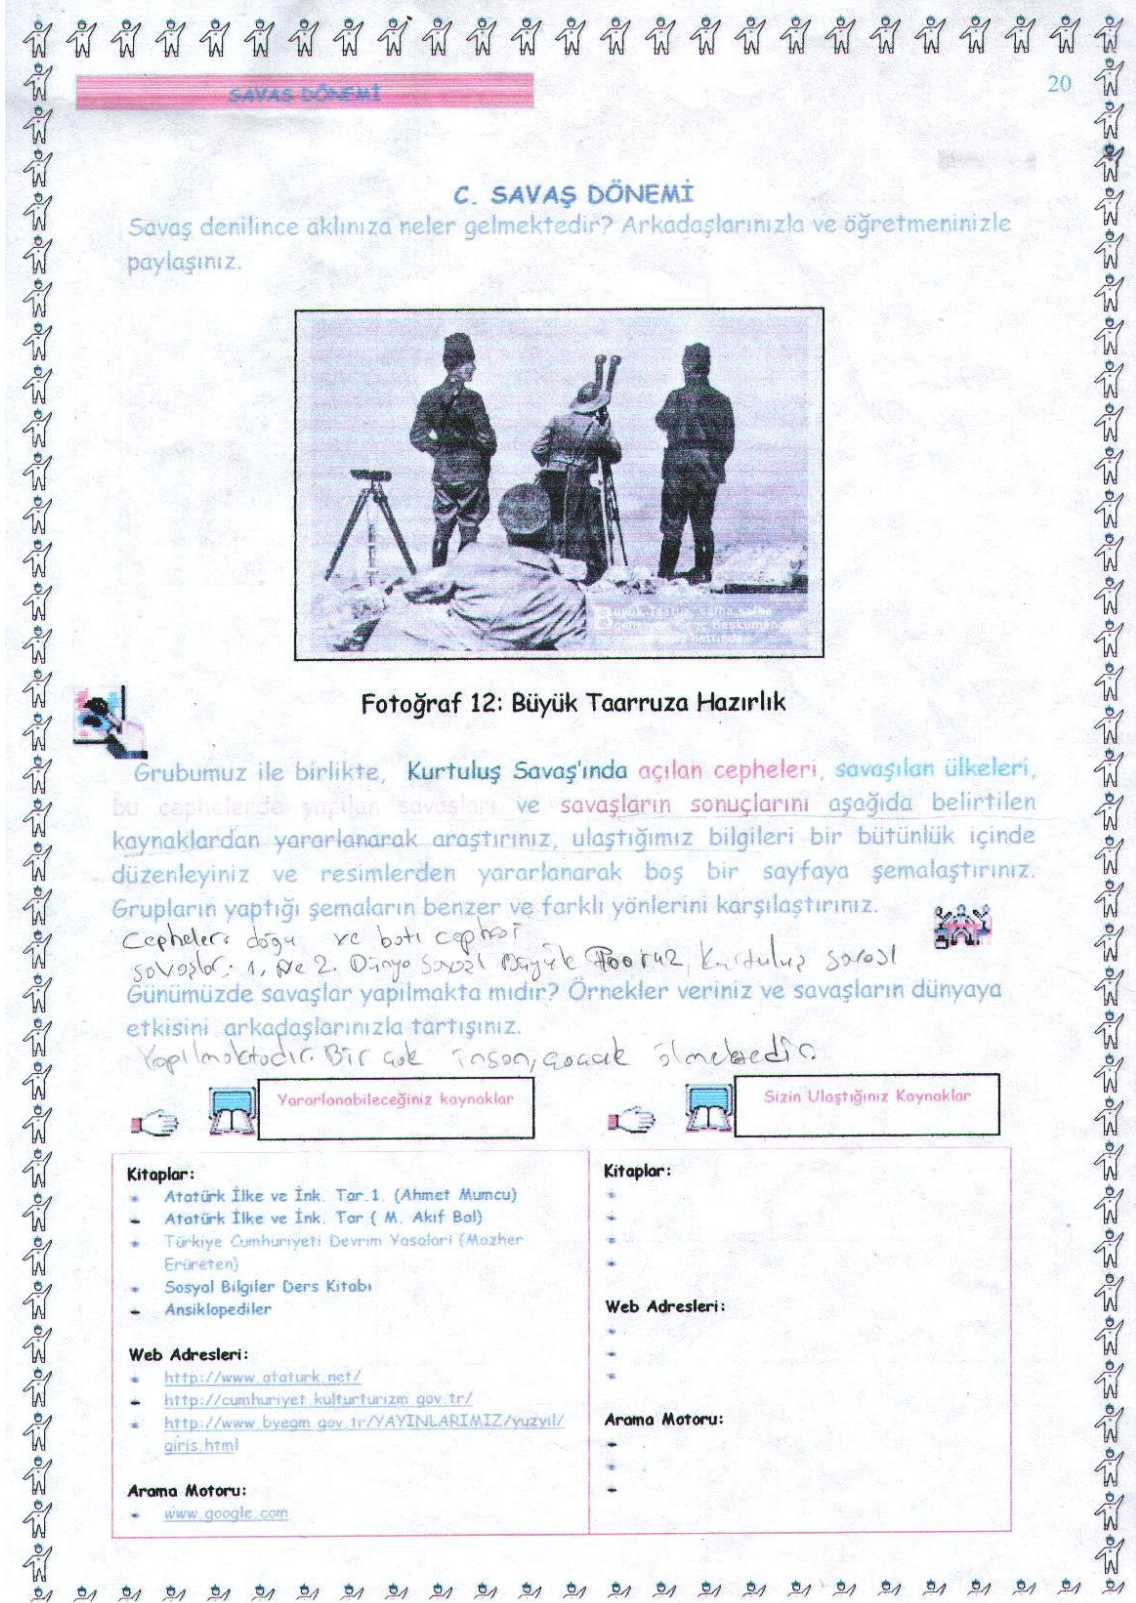 SAVAS DÖNEMİ
20
C. SAVAŞ DÖNEMİ
Savaş denilince aklınıza neler gelmektedir? Arkadaşlarınızla ve öğretmeninizle
paylaşınız.
Fotoğraf 12: Büyük Taarruza Hazırlık
Grubumuz ile birlikte, Kurtuluş Savaş'ında açılan cepheleri, savaşılan ülkeleri,
bu cephelerde yapılan savaşları ve savaşların sonuçlarını aşağıda belirtilen
kaynaklardan yararlanarak araştırınız, ulaştığımız bilgileri bir bütünlük içinde
düzenleyiniz ve resimlerden yararlanarak boş bir sayfaya şemalaştırınız.
Grupların yaptığı şemaların benzer ve farklı yönlerini karşılaştırınız.
Cepheler: doğu ve batı cephesi
savaşlar: 1. ve 2. Dünya Savaşı Büyük Kurtuluş savaşı
Günümüzde savaşlar yapılmakta mıdır? Örnekler veriniz ve savaşların dünyaya
etkisini arkadaşlarınızla tartışınız.
Yapılmaktadır. Bir çok insan, çocuk ölmektedir.
Yararlanabileceğiniz kaynaklar
Kitaplar:
Atatürk İlke ve İnk. Tar.1. (Ahmet Mumcu)
Atatürk İlke ve İnk. Tar ( M. Akif Bal)
Türkiye Cumhuriyeti Devrim Yasaları (Mazher
Erüreten)
Sosyal Bilgiler Ders Kitabı
Ansiklopediler
Web Adresleri:
http://www.ataturk.net/
http://cumhuriyet.kulturturizm.gov.tr/
http://www.byegm.gov.tr/YAYINLARIMIZ/yuzyil/
giris.html
Arama Motoru:
www.google.com
Sizin Ulaştığınız Kaynaklar
Kitaplar:
Web Adresleri:
Arama Motoru: